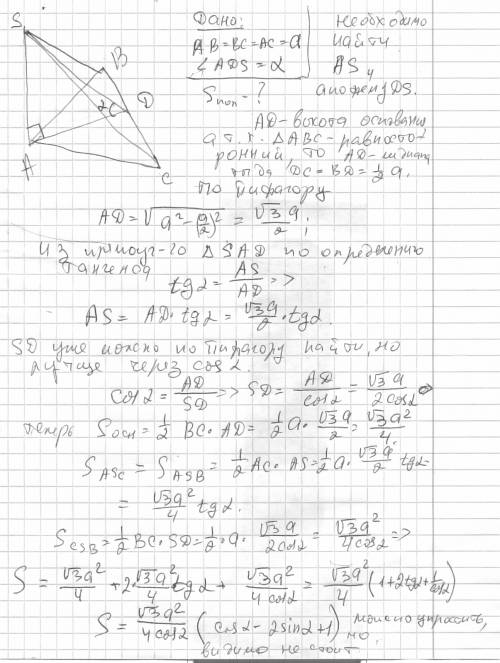 S
B
D
C
A
α
Дано:
AB=BC=AC=a
∠ADS=α
Sпоп-?
Необходимо
найти
AS и
апофему DS.
AD-высота основания
а т.к. ΔABC-равносто-
ронний, то AD-медиана
тогда DC=BD=½a.
По Пифагору
AD=√(a²-(a/2)²)=√3a/2;
Из прямоуг-го ΔSAD по определению
тангенса
tgα=AS/AD=>
AS=AD·tgα=√3a/2·tgα.
SD уже можно по Пифагору найти, но
лучше через cosα.
cosα=AD/SD=>SD=AD/cosα=√3a/2cosα=>
теперь Sосн=½BC·AD=½a·√3a/2=√3a²/4.
SASC=SASB=½AC·AS=½a·√3a/2tgα=
=√3a²/4tgα.
SCSB=½BC·SD=½·a·√3a/2cosα=√3a²/4cosα=>
S=√3a²/4+2·√3a²/4tgα+√3a²/4cosα=√3a²/4(1+2tgα+1/cosα)
S=√3a²/4cosα(cosα-2sinα+1) можно упростить,
но,
видимо не стоит